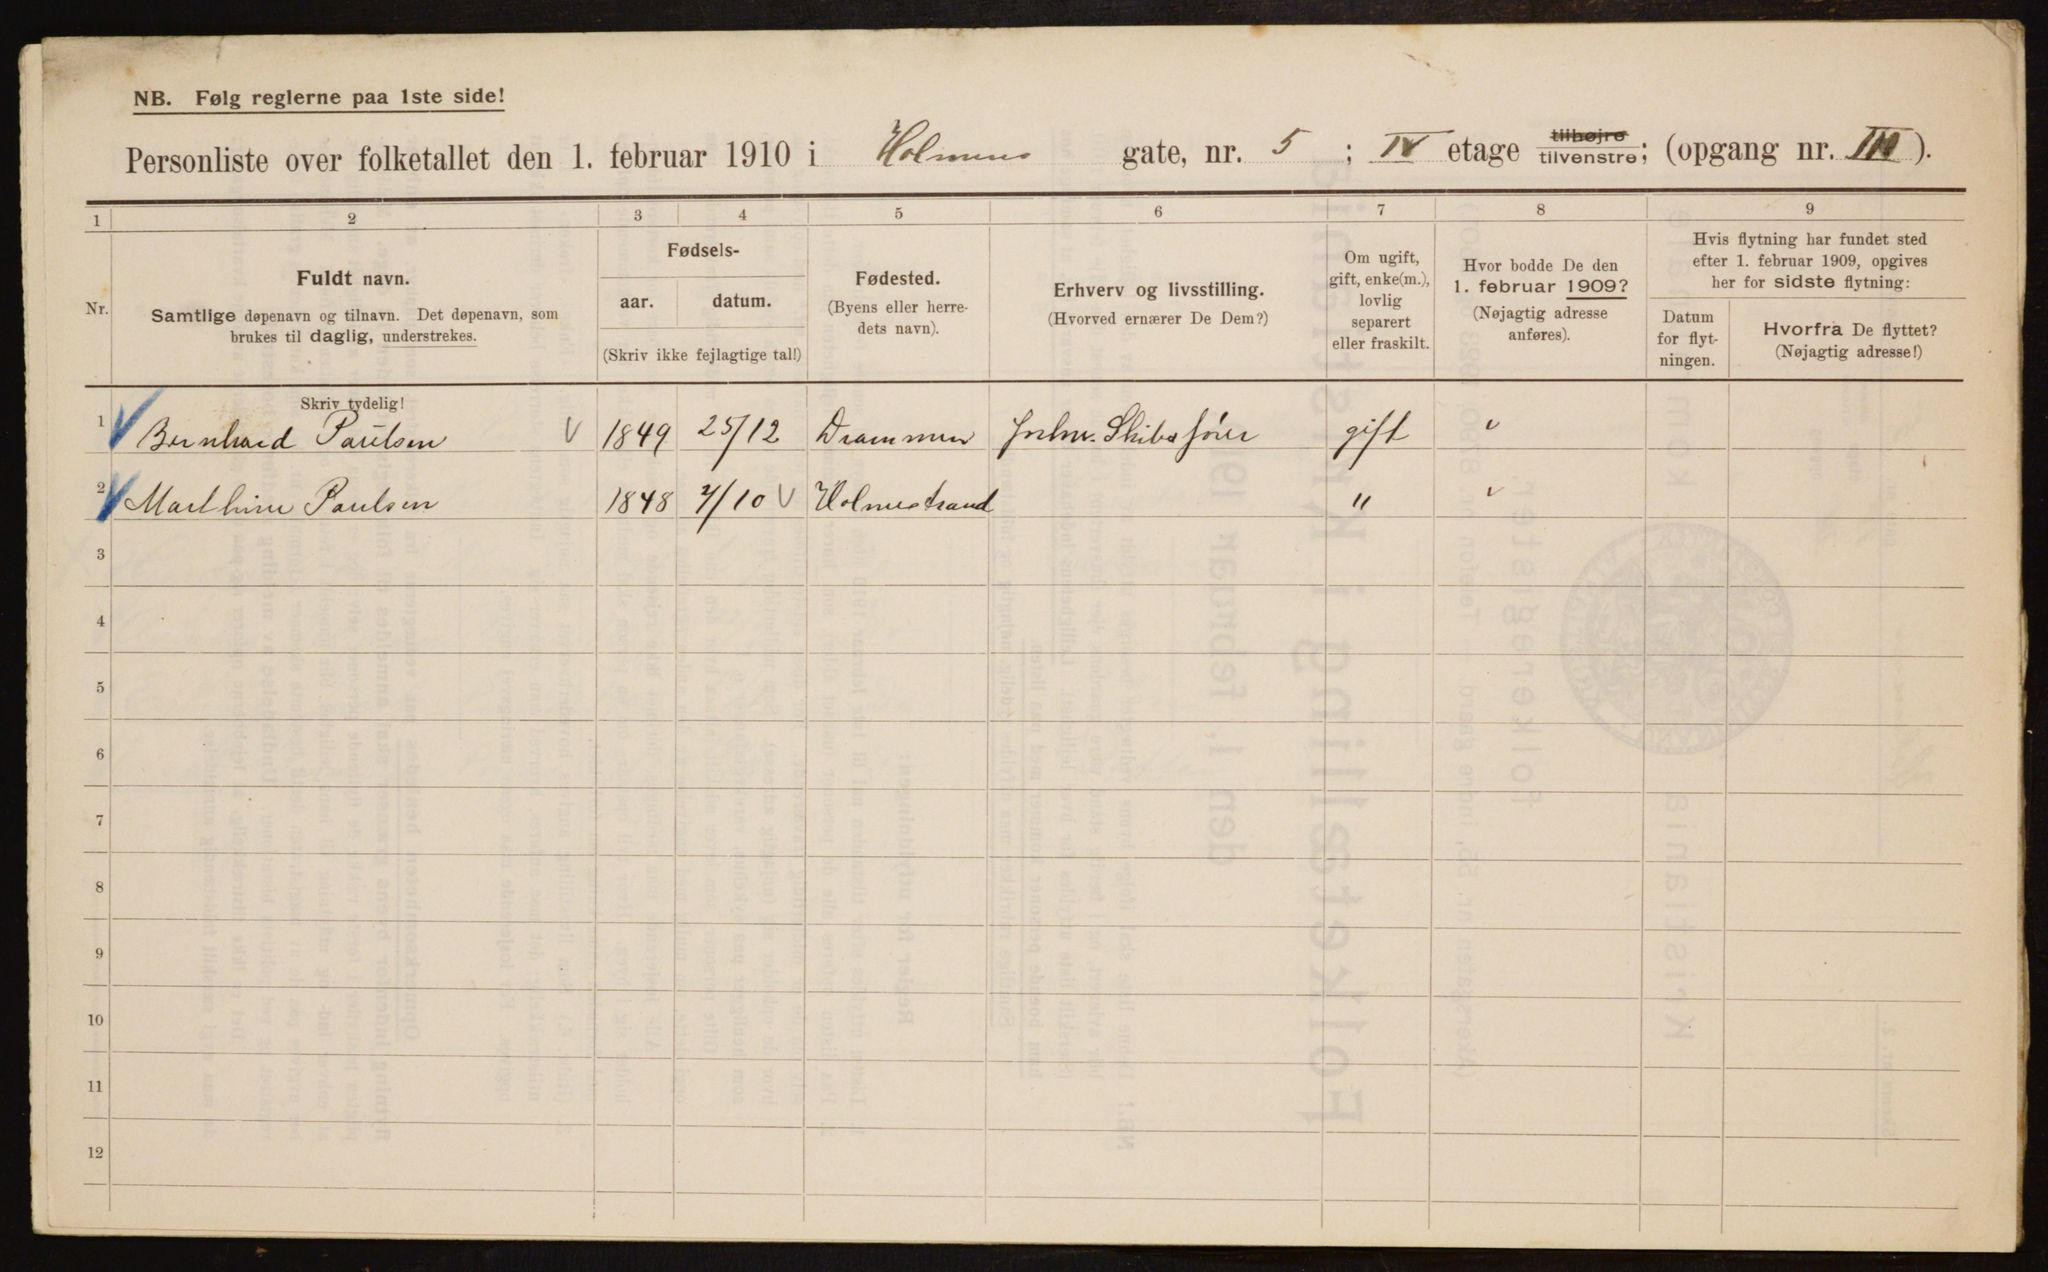 NB. Følg reglerne paa 1ste side!
Personliste over folketallet den 1. februar 1910 i Holmens gate, nr. 5 ; IV etage tilhøjre tilvenstre; (opgang nr. III ).
1 2 3 4 5 6 7 8 9
Nr.
Fuldt navn.
Samtlige døpenavn og tilnavn. Det døpenavn, som
brukes til daglig, understrekes.
Skriv tydelig!
Fødsels-
aar. datum.
(Skriv ikke fejlagtige tal!)
Fødested.
(Byens eller herre-
dets navn).
Erhverv og livsstilling.
(Hvorved ernærer De Dem?)
Om ugift,
gift, enke(m.),
lovlig
separert
eller fraskilt.
Hvor bodde De den
1. februar 1909?
(Nøjagtig adresse
anføres).
Hvis flytning har fundet sted
efter 1. februar 1909, opgives
her for sidste flytning:
Datum
for flyt-
ningen.
Hvorfra De flyttet?
(Nøjagtig adresse!)
1 Bernhard Paulsen 1849 25/12 Drammen Skibsfører gift "
2 Marthine Paulsen 1848 7/10 Holmestrand " "
3
4
5
6
7
8
9
10
11
12